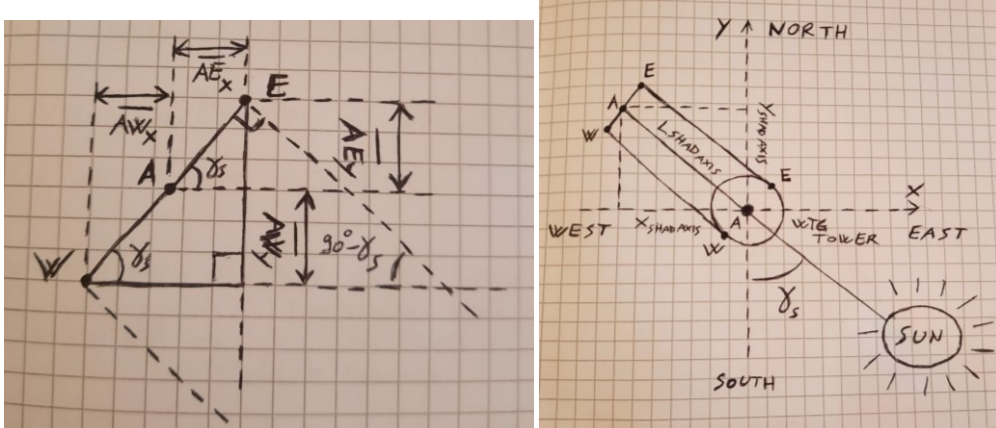 AEx
E
AWx
AEy
A
γs
AWy
W
γs
90°-γs
Y NORTH
E
A
YSHADAXIS
W
LSHADAXIS
E
X
WEST
XSHADAXIS
A
WTG
TOWER
EAST
W
γs
SUN
SOUTH